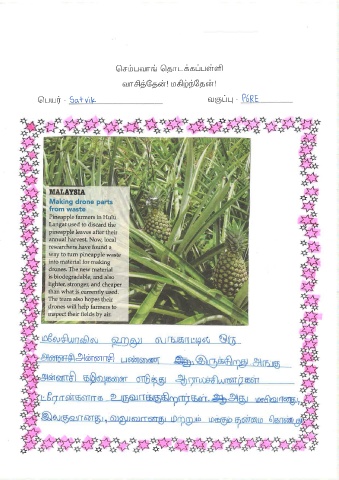 செம்பவாங் தொடக்கப்பள்ளி
வாசித்தேன்! மகிழ்ந்தேன்!
பெயர் - Satvik வகுப்பு - P5RE
MALAYSIA
Making drone parts
from waste
Pineapple farmers in Hulu
Langat used to discard the
pineapple leaves after their
annual harvest. Now, local
researchers have found a
way to turn pineapple waste
into material for making
drones. The new material
is biodegradable, and also
lighter, stronger, and cheaper
than what is currently used.
The team also hopes their
drones will help farmers to
inspect their fields by air.
மலேசியாவில் ஹூலு லங்காட்டில் ஒரு
அன்னாசி பண்ணை இருக்கிறது அங்கு
அன்னாசி கழிவுகளை எடுத்து ஆராய்ச்சியாளர்கள்
ட்ரோன்களாக உருவாக்குகிறார்கள். அது மலிவானது,
இலகுவானது, வலுவானது மற்றும் மக்கும் தன்மை